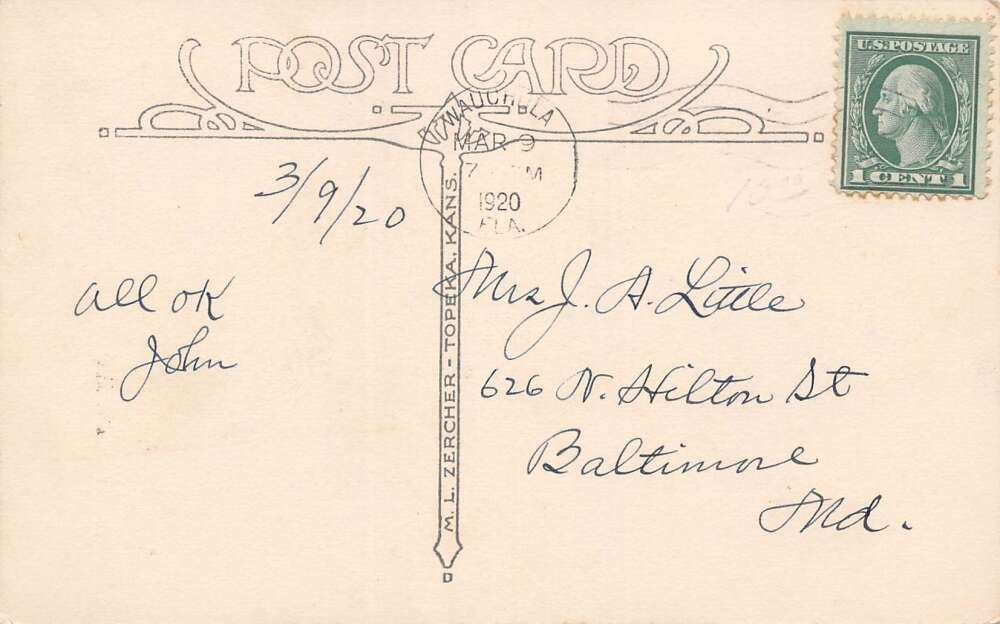 POST CARD
U.S. POSTAGE
1 CENT 1
WAUCHULA
MAR 9
7 M
1920
FLA.
3/9/20
All OK
John
Mrs J. A. Little
626 N. Hilton St
Baltimore
Md.
M. L. ZERCHER - TOPEKA, KANS.